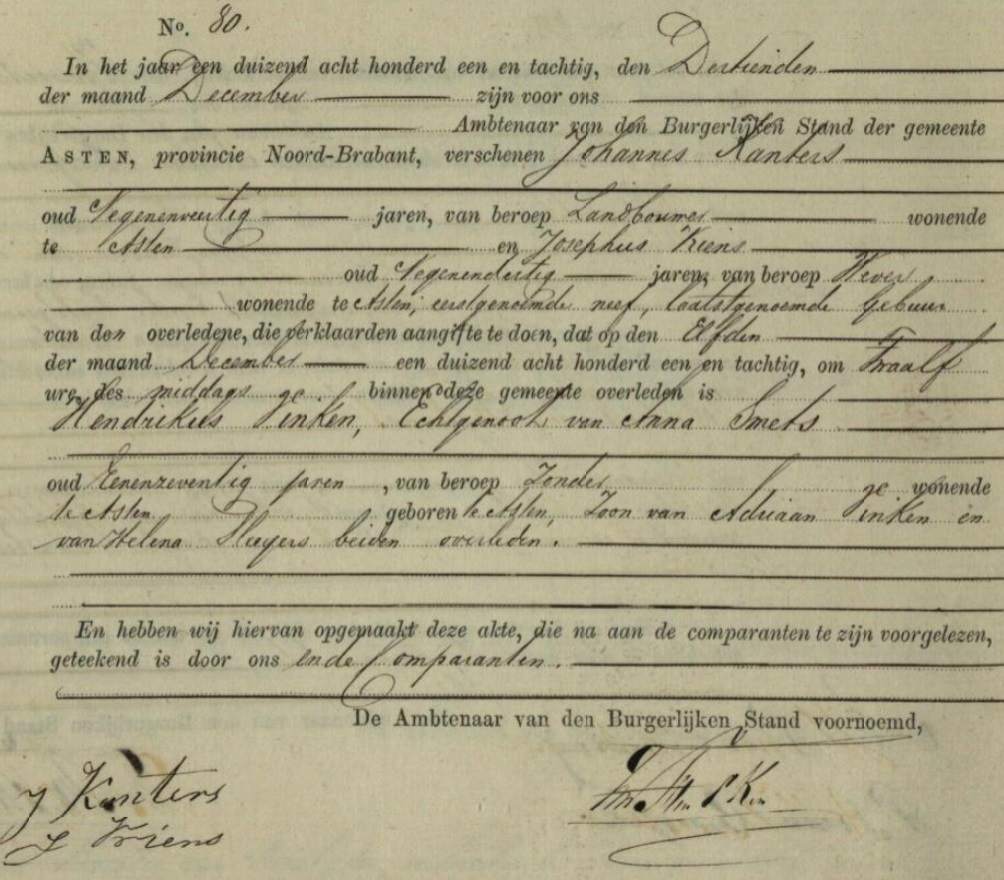 No. 80.
In het jaar een duizend acht honderd een en tachtig, den Dertienden
der maand December zijn voor ons
Ambtenaar van den Burgerlijken Stand der gemeente
ASTEN, provincie Noord-Brabant, verschenen Johannes Kanters
oud Negenenveertig jaren, van beroep Landbouwer wonende
te Asten en Josephus Vriens
oud Negenendertig jaren, van beroep Wever
wonende te Asten, eerstgenoemde neef, laatstgenoemde Gebuur
van den overledene, die verklaarden aangifte te doen, dat op den Elfden
der maand December een duizend acht honderd een en tachtig, om Twaalf
ure, des middags binnen deze gemeente overleden is
Hendrikus Vinken, Echtgenoot van Anna Smets
oud Eenenzeventig jaren, van beroep Zonder wonende
te Asten geboren te Asten, Zoon van Adriaan Vinken en
van Helena Sleegers beiden overleden.
En hebben wij hiervan opgemaakt deze akte, die na aan de comparanten te zijn voorgelezen,
geteekend is door ons en de Comparanten.
De Ambtenaar van den Burgerlijken Stand voornoemd,
J Kanters
J Vriens